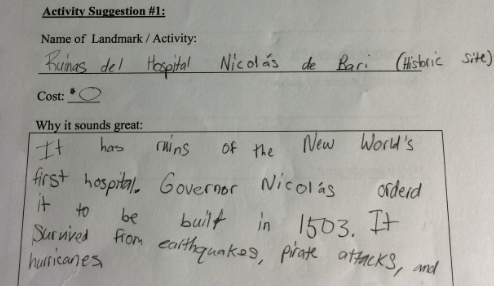 Activity Suggestion #1:
Name of Landmark / Activity:
Ruinas del Hospital Nicolás de Bari (Historic site)
Cost: $0
Why it sounds great:
It has ruins of the New World's
first hospital. Governor Nicolás orderd
it to be built in 1503. It
survived from earthquakes, pirate attacks, and
hurricanes